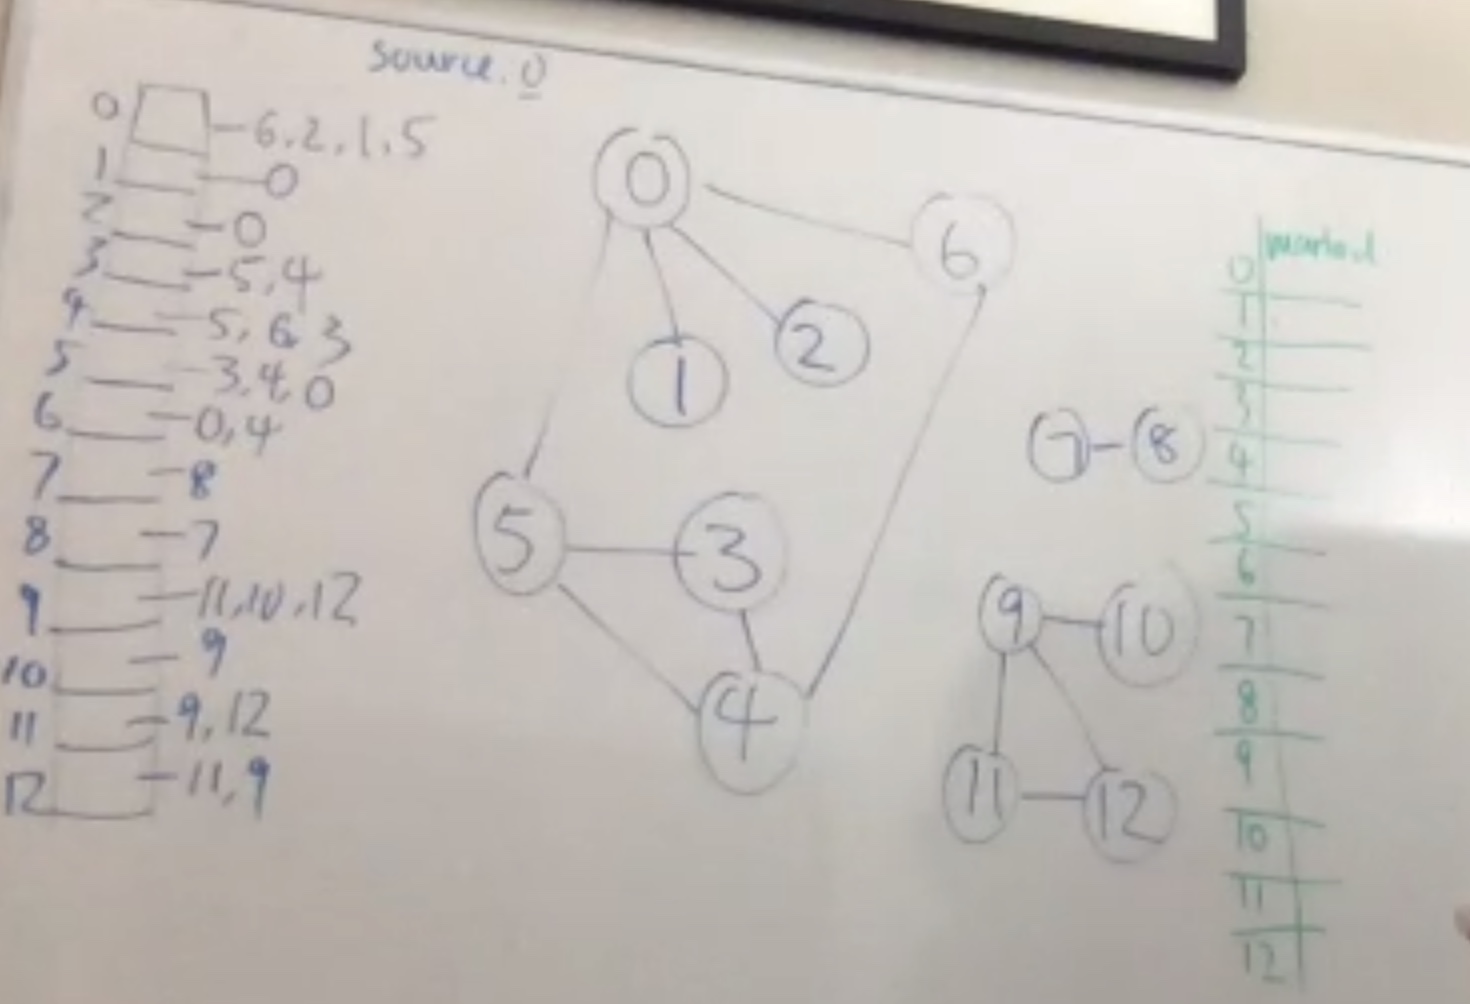 source. 0
0 6, 2, 1, 5
1 0
2 0
3 5, 4
4 5, 6 3
5 3, 4, 0
6 0, 4
7 8
8 7
9 11, 10, 12
10 9
11 9, 12
12 11, 9
0
6
1
2
5
3
4
7
8
9
10
11
12
marked
0
1
2
3
4
5
6
7
8
9
10
11
12